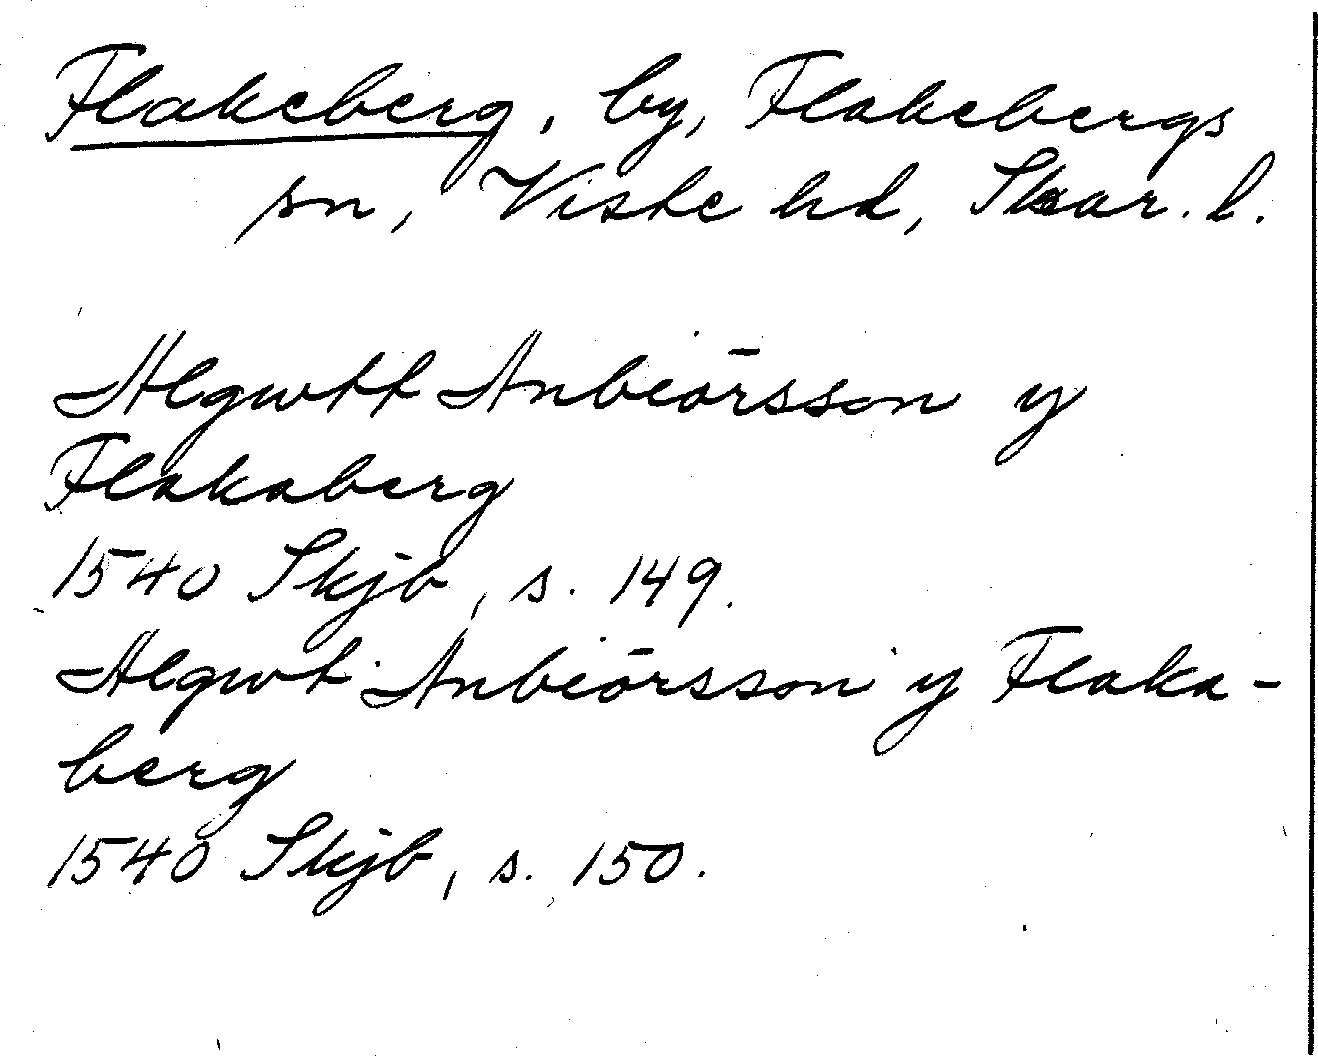 Flakeberg, by, Flakebergs
sn, Viste hd, Skar. l.
Algwtt Anbeōrsson y
Flakaberg
1540 Skjb, s. 149.
Algwt Anbeōrsson y Flaka-
berg
1540 Skjb, s. 150.